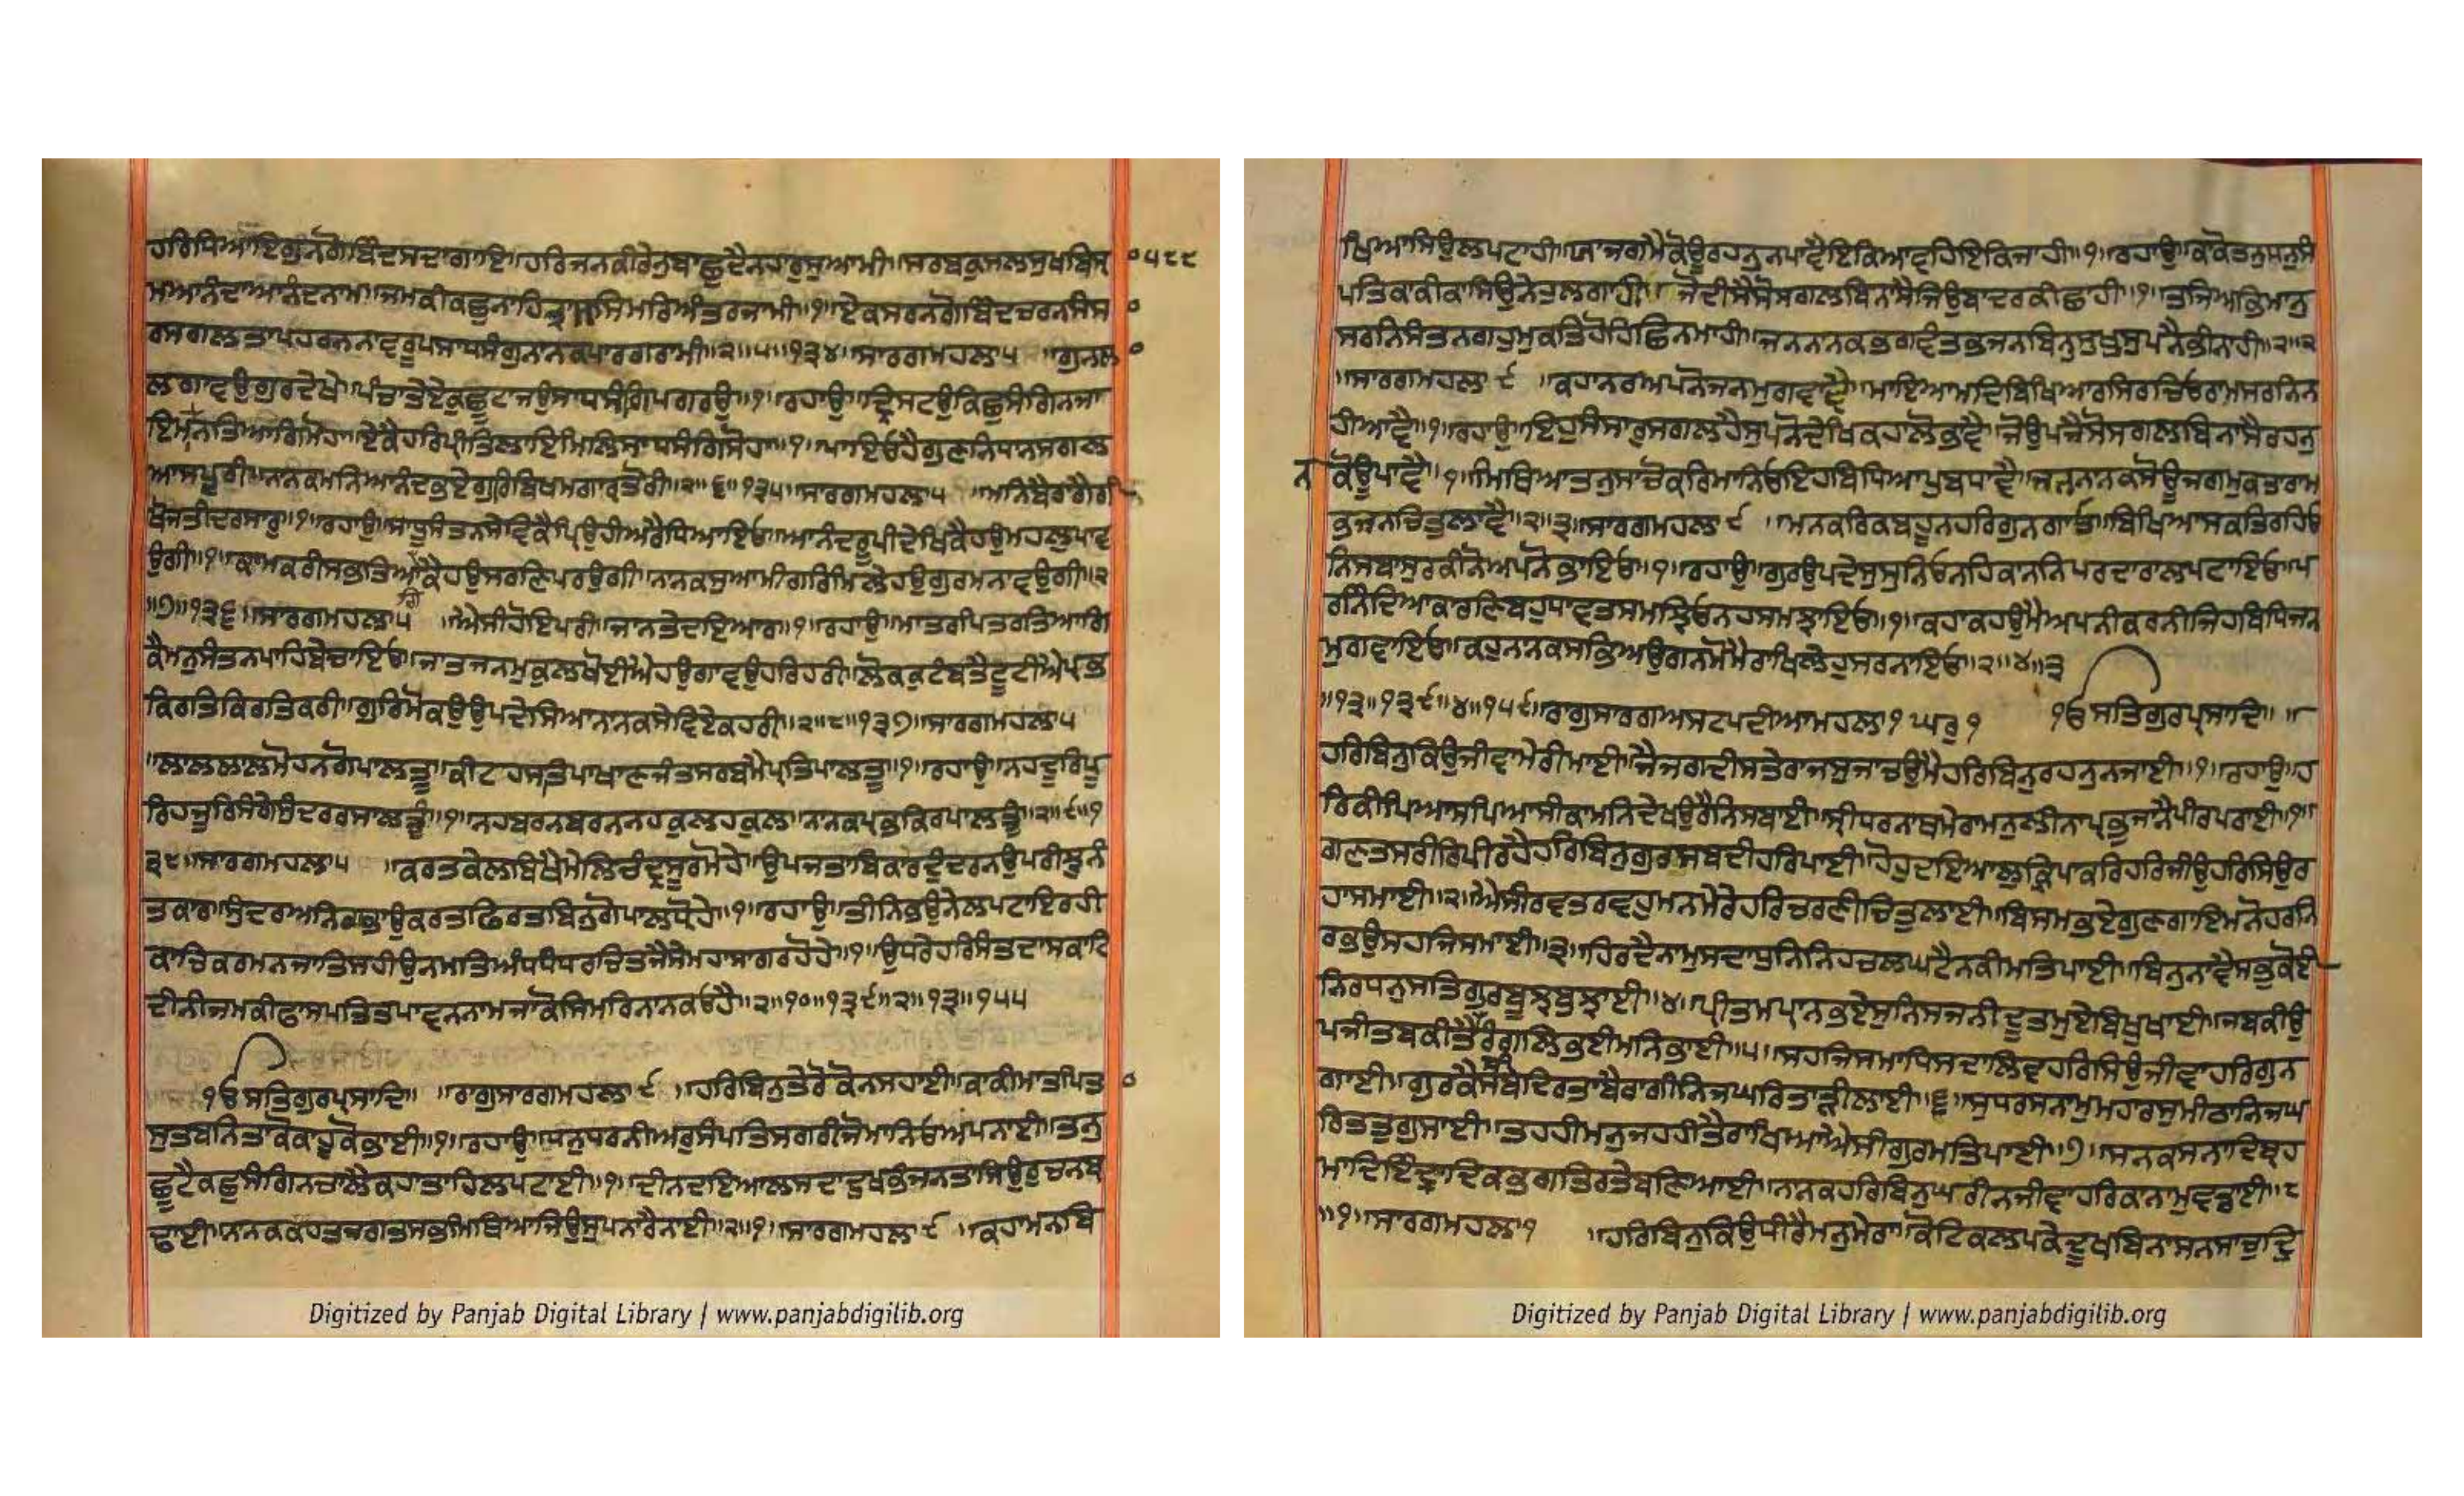 ਹਰਿਧਿਆਇਗੁਨਗੋਬਿੰਦਸਦਾਗਾਇ॥ਹਰਿਜਨਕੀਰੇਨੁਬਾਛੁਦੈਨਹਾਰੁਸੁਆਮੀ॥ਸਰਬਕੁਸਲਸੁਖਬਿਸ੍ਰਾ ੦੫੮੮
ਮਆਨੰਦਾਆਨੰਦਨਾਮ॥ਜਮਕੀਕਛੁਨਾਹਿਤ੍ਰਾਸਸਿਮਰਿਅੰਤਰਜਾਮੀ॥੧॥ਏਕਸਰਨਗੋਬਿੰਦਚਰਨਸੰਸ ੦
ਰਸਗਲਤਾਪਹਰਨਨਾਵਰੂਪਸਾਧਸੰਗੁਨਾਨਕਪਾਰਗਰਾਮੀ॥੨॥੫॥੧੩੪॥ਸਾਰਗਮਹਲਾ੫ ॥ਗੁਨਲ ੦
ਲਗਾਵਉਗੁਰਦੇਖੇ॥ਪੰਚਾਤੇਏਕੁਛੂਟਾਜਉਸਾਧਸੰਗਿਪਗਰਉ॥੧॥ਰਹਾਉ॥ਦ੍ਰਿਸਟਉਕਿਛੁਸੰਗਿਨਜਾ
ਇਮਨਤਿਆਗਿਮੋਹਾ॥ਏਕੈਹਰਿਪ੍ਰੀਤਿਲਾਇਮਿਲਿਸਾਧਸੰਗਿਸੋਹਾ॥੧॥ਪਾਇਓਹੈਗੁਣਨਿਧਾਨਸਗਲ
ਆਸਪੂਰੀ॥ਨਾਨਕਮਨਿਆਨੰਦਭਏਗੁਰਿਬਿਖਮਗਾਰਤੋਰੀ॥੨॥੬॥੧੩੫॥ਸਾਰਗਮਹਲਾ੫ ॥ਮਨਿਬੈਰਾਗੈਗੀ
ਖੋਜਤੀਦਰਸਾਰੁ॥੧॥ਰਹਾਉ॥ਸਾਧੂਸੰਤਨਸੇਵਿਕੈਪ੍ਰਿਉਹੀਅਰੈਧਿਆਇਓ॥ਆਨੰਦਰੂਪੀਦੇਖਿਕੈਹਉਮਹਲੁਪਾਵ
ਉਗੀ॥੧॥ਕਾਮਕਰੀਸਭਤਿਆਗਿਕੈਹਉਸਰਣਿਪਰਉਗੀ॥ਨਾਨਕਸੁਆਮੀਗਰਿਮਿਲੇਹਉਗੁਰਮਨਾਵਉਗੀ॥੨
॥੭॥੧੩੬॥ਸਾਰਗਮਹਲਾ੫ ॥ਐਸੀਹੋਇਪਰੀ॥ਜਾਨਤੇਦਇਆਰ॥੧॥ਰਹਾਉ॥ਮਾਤਰਪਿਤਰਤਿਆਗਿ
ਕੈਮਨੁਸੰਤਨਪਾਹਿਬੇਚਾਇਓ॥ਜਾਤਿਜਨਮਕੁਲਖੋਈਐਹਉਗਾਵਉਹਰਿਹਰੀ॥ਲੋਕਕੁਟੰਬਤੇਟੂਟੀਐਪ੍ਰਭ
ਕਿਰਤਿਕਿਰਤਿਕਰੀ॥ਗੁਰਿਮੋਕਉਉਪਦੇਸਿਆਨਾਨਕਸੇਵਿਏਕਹਰੀ॥੨॥੮॥੧੩੭॥ਸਾਰਗਮਹਲਾ੫
॥ਲਾਲਲਾਲਮੋਹਨਗੋਪਾਲਤੂ॥ਕੀਟਹਸਤਿਪਾਖਾਣਜੰਤਸਰਬਮੈਪ੍ਰਤਿਪਾਲਤੂ॥੧॥ਰਹਾਉ॥ਨਹਦੂਰਿਪੂ
ਰਿਹਜੂਰਿਸੰਗੇਸੁੰਦਰਰਸਾਲਤੂੰ॥੧॥ਨਹਬਰਨਬਰਨਨਹਕੁਲਹਕੁਲ॥ਨਾਨਕਪ੍ਰਭਕਿਰਪਾਲਤੂੰ॥੨॥੯॥੧
੩੮॥ਸਾਰਗਮਹਲਾ੫ ॥ਕਰਤਕੇਲਬਿਖੈਮੇਲਿਚੰਦ੍ਰਸੂਰਮੋਹੇ॥ਉਪਜਤਾਬਿਕਾਰਦੁੰਦਰਨਉਪਰੀਝੁਨੰ
ਤਕਾਰਸੁੰਦਰਅਨਿਕਭਾਉਕਰਤਫਿਰਤਬਿਨੁਗੋਪਾਲਧੋਹੇ॥੧॥ਰਹਾਉ॥ਤੀਨਿਭਉਨੇਲਪਟਾਇਰਹੀ
ਕਾਚਿਕਰਮਨਜਾਤਿਸਹੀਉਨਮਤਿਅੰਧਧੰਧਰਚਿਤਜੈਸੇਮਹਾਸਾਗਰਹੋਹੇ॥੧॥ਉਧਰੇਹਰਿਸੰਤਦਾਸਕਾਟਿ
ਦੀਨੀਜਮਕੀਫਾਸਪਤਿਤਪਾਵਨਨਾਮਜਾਕੋਸਿਮਰਿਨਾਨਕਓਹੈ॥੨॥੧੦॥੧੩੯॥੨॥੧੩॥੧੫੫
ੴਸਤਿਗੁਰਪ੍ਰਸਾਦਿ॥ ॥ਰਾਗੁਸਾਰਗਮਹਲਾ੯ ॥ਹਰਿਬਿਨੁਤੇਰੋਕੋਨਸਹਾਈ॥ਕਾਕੀਮਾਤਪਿਤ ੦
ਸੁਤਬਨਿਤਾਕੋਕਾਹੂਕੋਭਾਈ॥੧॥ਰਹਾਉ॥ਧਨੁਧਰਨੀਅਰੁਸੰਪਤਿਸਗਰੀਜੋਮਾਨਿਓਅਪਨਾਈ॥ਤਨੁ
ਛੂਟੈਕਛੁਸੰਗਿਨਚਾਲੈਕਹਾਤਾਹਿਲਪਟਾਈ॥੧॥ਦੀਨਦਇਆਲਸਦਾਦੁਖਭੰਜਨਤਾਸਿਉਰੁਚਨਬ
ਢਾਈ॥ਨਾਨਕਕਹਤਜਗਤਸਭਮਿਥਿਆਜਿਉਸੁਪਨਾਰੈਨਾਈ॥੨॥੧॥ਸਾਰਗਮਹਲਾ੯ ॥ਕਹਾਮਨਬਿ
ਖਿਆਸਿਉਲਪਟਾਹੀ॥ਯਾਜਗਮੈਕੋਊਰਹਨੁਨਪਾਵੈਇਕਿਆਵਹਿਇਕਿਜਾਹੀ॥੧॥ਰਹਾਉ॥ਕਾਕੋਤਨੁਧਨੁਸੰ
ਪਤਿਕਾਕੀਕਾਸਿਉਨੇਹੁਲਗਾਹੀ॥ਜੋਦੀਸੈਸੋਸਗਲਬਿਨਾਸੈਜਿਉਬਾਦਰਕੀਛਾਹੀ॥੧॥ਤਜਿਅਭਿਮਾਨੁ
ਸਰਨਿਸੰਤਨਗਹੁਮੁਕਤਿਹੋਹਿਛਿਨਮਾਹੀ॥ਜਨਨਾਨਕਭਗਵੰਤਭਜਨਬਿਨੁਸੁਖੁਸੁਪਨੈਭੀਨਾਹੀ॥੨॥੨
॥ਸਾਰਗਮਹਲਾ੯ ॥ਕਹਾਨਰਅਪਨੋਜਨਮੁਗਵਾਵੈ॥ਮਾਇਆਮਦਿਬਿਖਿਆਰਸਿਰਚਿਓਰਾਮਸਰਨਿਨ
ਹੀਆਵੈ॥੧॥ਰਹਾਉ॥ਇਹੁਸੰਸਾਰੁਸਗਲਹੈਸੁਪਨੋਦੇਖਿਕਹਾਲੋਭਾਵੈ॥ਜੋਉਪਜੈਸੋਸਗਲਬਿਨਾਸੈਰਹਨੁ
ਨ ਕੋਊਪਾਵੈ॥੧॥ਮਿਥਿਆਤਨੁਸਾਚੋਕਰਿਮਾਨਿਓਇਹਬਿਧਿਆਪੁਬਧਾਵੈ॥ਜਨੁਨਾਨਕਸੋਊਜਗਮੁਕਤਾਰਾਮ
ਭਜਨਚਿਤੁਲਾਵੈ॥੨॥੩॥ਸਾਰਗਮਹਲਾ੯ ॥ਮਨਕਰਿਕਬਹੂਨਹਰਿਗੁਨਗਾਇਓ॥ਬਿਖਿਆਸਕਤਿਰਹਿਓ
ਨਿਸਬਾਸੁਰਕੀਨੋਅਪਨੋਭਾਇਓ॥੧॥ਰਹਾਉ॥ਗੁਰਉਪਦੇਸੁਸੁਨਿਓਨਹਿਕਾਨਨਿਪਰਦਾਰਾਲਪਟਾਇਓ॥ਪ
ਰਨਿੰਦਿਆਕਾਰਣਿਬਹੁਧਾਵਤਸਮਝਿਓਨਹਸਮਝਾਇਓ॥੧॥ਕਹਾਕਹਉਮੈਅਪਨੀਕਰਨੀਜਿਹਬਿਧਿਜਨ
ਮੁਗਵਾਇਓ॥ਕਹੁਨਾਨਕਸਭਿਅਉਗਨਮੋਮੈਰਾਖਿਲੇਹੁਸਰਨਾਇਓ॥੨॥੪॥੩
॥੧੩॥੧੩੯॥੪॥੧੫੯॥ਰਾਗੁਸਾਰਗਅਸਟਪਦੀਆਮਹਲਾ੧ਘਰੁ੧ ੴਸਤਿਗੁਰਪ੍ਰਸਾਦਿ॥ ॥
ਹਰਿਬਿਨੁਕਿਉਜੀਵਾਮੇਰੀਮਾਈ॥ਜੈਜਗਦੀਸਤੇਰਾਜਸੁਜਾਚਉਮੈਹਰਿਬਿਨੁਰਹਨੁਨਜਾਈ॥੧॥ਰਹਾਉ॥ਹ
ਰਿਕੀਪਿਆਸਪਿਆਸੀਕਾਮਨਿਦੇਖਉਰੈਨਿਸਬਾਈ॥ਸ੍ਰੀਧਰਨਾਥਮੇਰਾਮਨੁਲੀਨਾਪ੍ਰਭੁਜਾਨੈਪੀਰਪਰਾਈ॥੧॥
ਗਣਤਸਰੀਰਿਪੀਰਹੈਹਰਿਬਿਨੁਗੁਰਸਬਦੀਹਰਿਪਾਈ॥ਹੋਹੁਦਇਆਲਕ੍ਰਿਪਾਕਰਿਹਰਿਜੀਉਹਰਿਸਿਉਰ
ਹਾਸਮਾਈ॥੨॥ਐਸੀਰਵਤਰਵਹੁਮਨਮੇਰੇਹਰਿਚਰਣੀਚਿਤੁਲਾਈ॥ਬਿਸਮਭਏਗੁਣਗਾਇਮਨੋਹਰਨਿ
ਰਭਉਸਹਜਿਸਮਾਈ॥੩॥ਹਿਰਦੈਨਾਮੁਸਦਾਧੁਨਿਨਿਹਚਲਘਟੈਨਕੀਮਤਿਪਾਈ॥ਬਿਨੁਨਾਵੈਸਭੁਕੋਈ
ਨਿਰਧਨੁਸਤਿਗੁਰਬੂਝਬੁਝਾਈ॥੪॥ਪ੍ਰੀਤਮਪ੍ਰਾਨਭਏਸੁਨਿਸਜਨੀਦੂਤਮੁਏਬਿਖੁਖਾਈ॥ਜਬਕੀਉ
ਪਜੀਤਬਕੀਤੈਸੀਰੰਗੁਲਿਭਈਮਨਿਭਾਈ॥੫॥ਸਹਜਿਸਮਾਧਿਸਦਾਲਿਵਹਰਿਸਿਉਜੀਵਾਹਰਿਗੁਨ
ਗਾਈ॥ਗੁਰਕੈਸਬਦਿਰਤਾਬੈਰਾਗੀਨਿਜਘਰਿਤਾੜੀਲਾਈ॥੬॥ਸੁਧਰਸਨਾਮੁਮਹਾਰਸੁਮੀਠਾਨਿਜਘ
ਰਿਤਤੁਗੁਸਾਈ॥ਤਹਹੀਮਨੁਜਹਹੀਤੈਰਾਖਿਆਐਸੀਗੁਰਮਤਿਪਾਈ॥੭॥ਸਨਕਸਨਾਦਿਬ੍ਰਹ
ਮਾਦਿਇੰਦ੍ਰਾਦਿਕਭਗਤਿਰਤੇਬਣਿਆਈ॥ਨਾਨਕਹਰਿਬਿਨੁਘਰੀਨਜੀਵਾਹਰਿਕਾਨਾਮੁਵਡਾਈ॥੮
॥੧॥ਸਾਰਗਮਹਲਾ੧ ॥ਹਰਿਬਿਨੁਕਿਉਧੀਰੈਮਨੁਮੇਰਾ॥ਕੋਟਿਕਲਪਕੇਦੂਖਬਿਨਾਸਨਸਾਚੁਦ੍ਰਿ
Digitized by Panjab Digital Library | www.panjabdigilib.org
Digitized by Panjab Digital Library | www.panjabdigilib.org